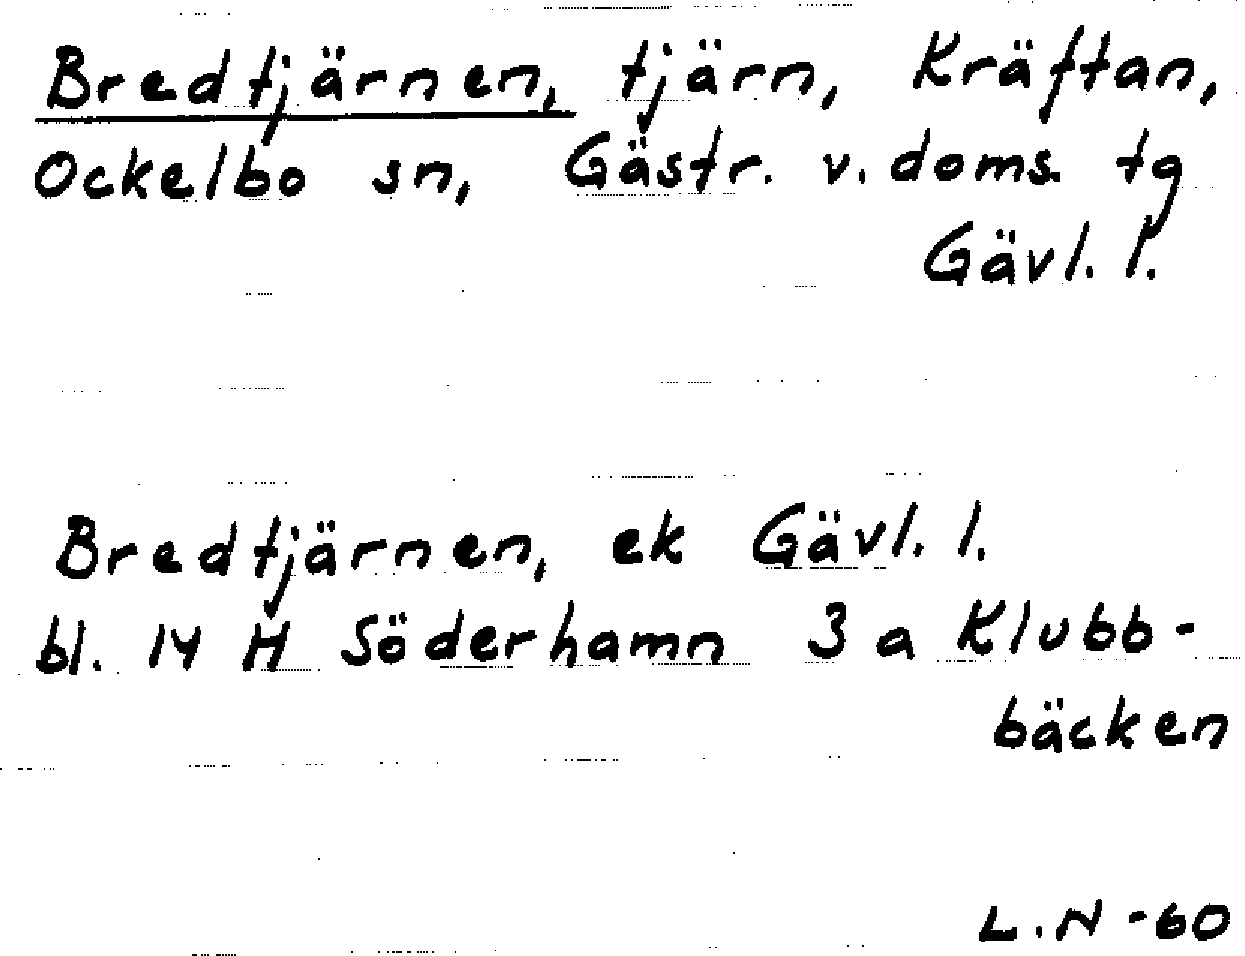 Bredtjärnen, tjärn, Kräftan,
Ockelbo sn, Gästr. v. doms. tg
Gävl. l.
Bredtjärnen, ek Gävl. l.
bl. 14 H Söderhamn 3 a Klubb-
bäcken
L.N -60